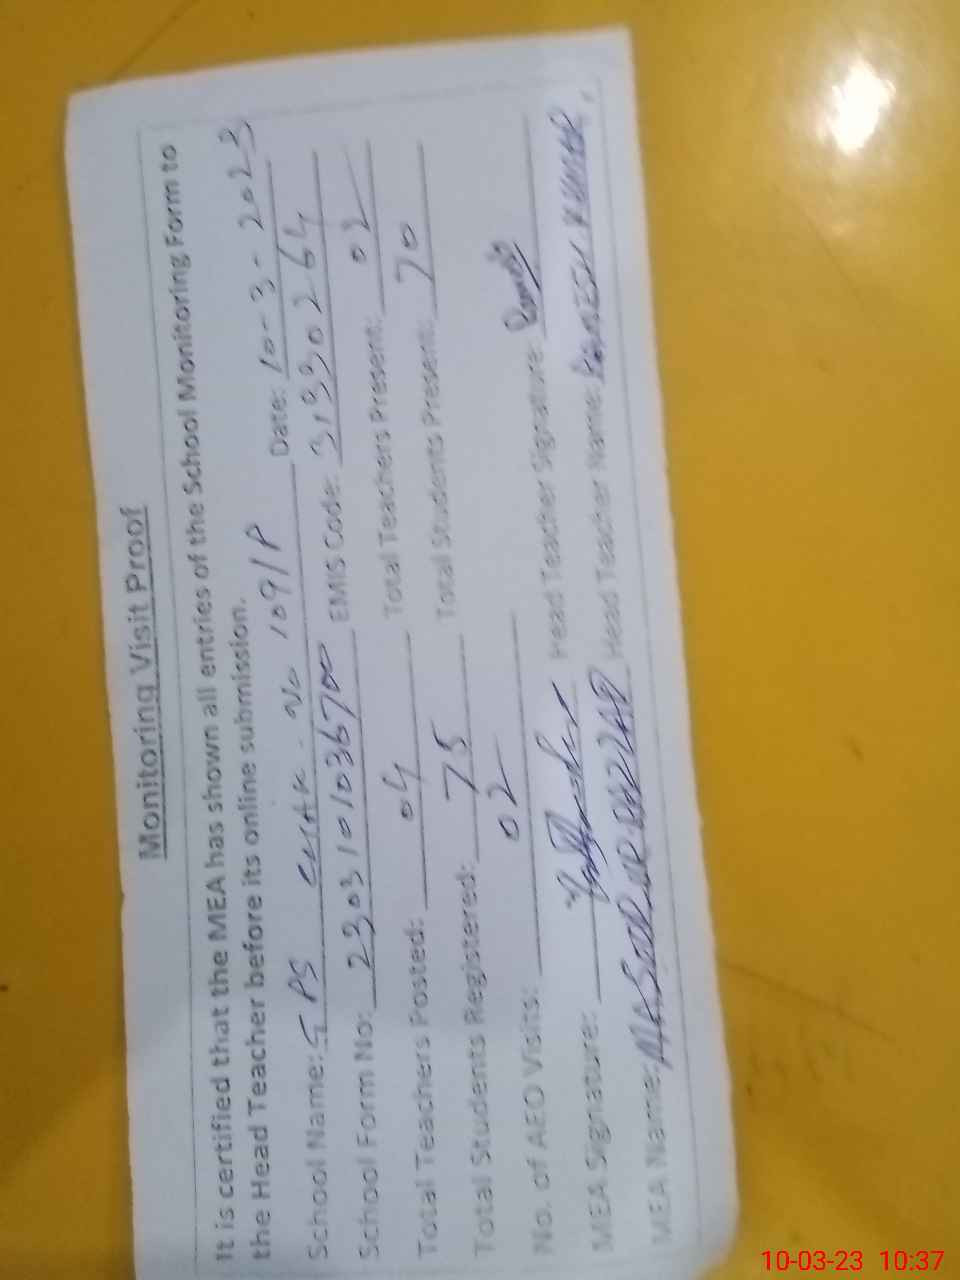 Monitoring Visit Proof
It is certified that the MEA has shown all entries of the School Monitoring Form to
the Head Teacher before its online submission.
School Name: GPS CHAK. No 109/P Date: 10-3-2023
School Form No: 2303101036700 EMIS Code: 31330264
Total Teachers Posted: 04 Total Teachers Present: 02
Total Students Registered: 75 Total Students Present: 70
No. of AEO Visits: 02
MEA Signature: Head Teacher Signature:
MEA Name: Head Teacher Name: KUMAR
10-03-23 10:37